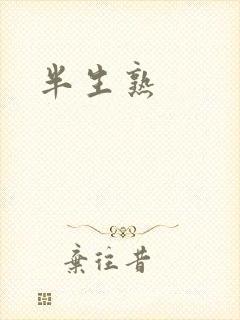 半生熟
棄往昔